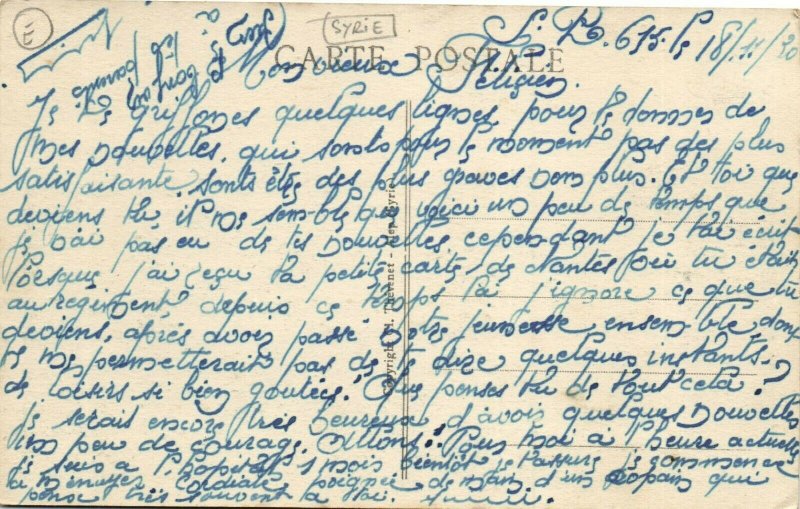 SYRIE
S. P. 615. le 18/11/20
CARTE POSTALE
Mon vieux Féligien.
Je te griffones quelques lignes pour te donner de
mes nouvelles, qui sont pour le moment pas des plus
satisfaisante sants êtres des plus graves non plus. Et toi que
deviens tu, il me semble que voici un peu de temps que
je n'ai pas eu de tes nouvelles, cependant je t'ai écrit
lorsque j'ai reçu ta petite carte de Nantes où tu étais
au régiment, depuis ce temps là j'ignore ce que tu
deviens, après avoir passé notre jeunesse ensemble donc
tu me permetterait pas de te dire quelques instants
de loisirs si bien goutées. Que penses tu de tout cela?
Je serais encore très heureux d'avoir quelques nouvelles
un peu de courage. Allons! Pour moi à l'heure actuelle
je suis a l'hopital 1 mois bientôt je t'assure je commence
à m'ennuyer Cordiale poignée de main d'un copain qui
pense très souvent à toi.
Copyright M. Thévenet - Alep (Syrie)